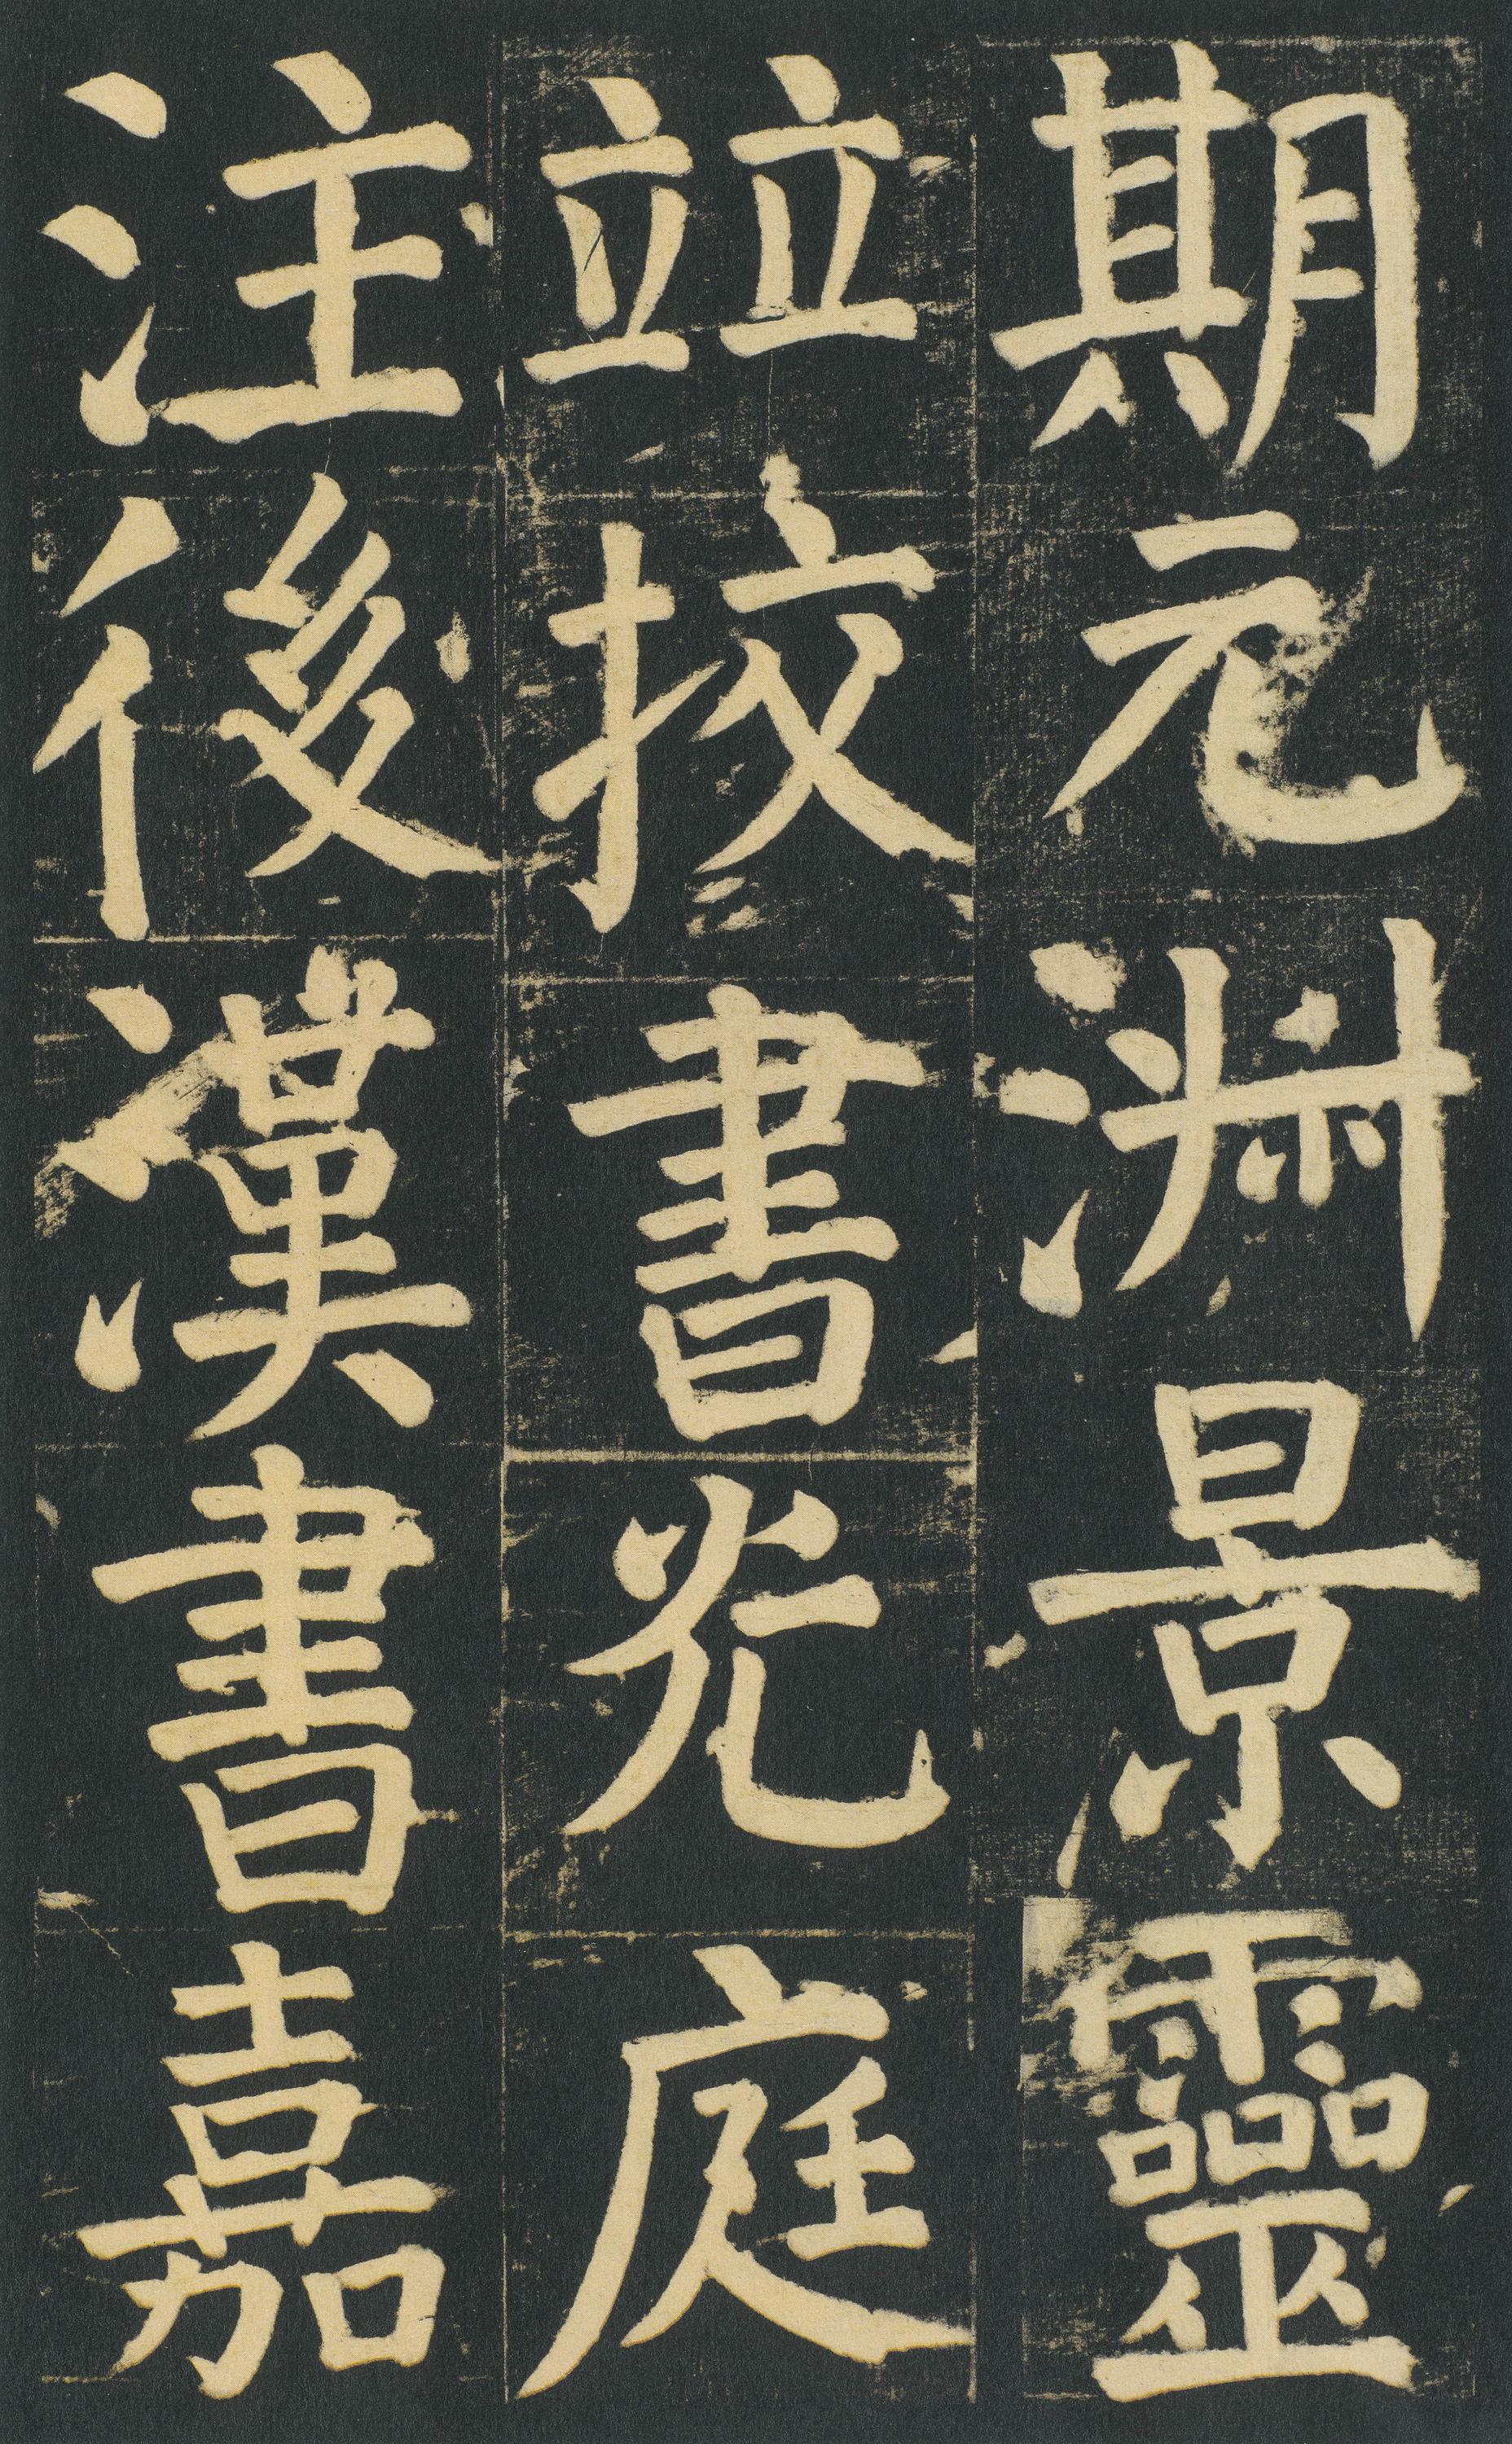 期元渊景靈
竝挍書光庭
注後漢書嘉